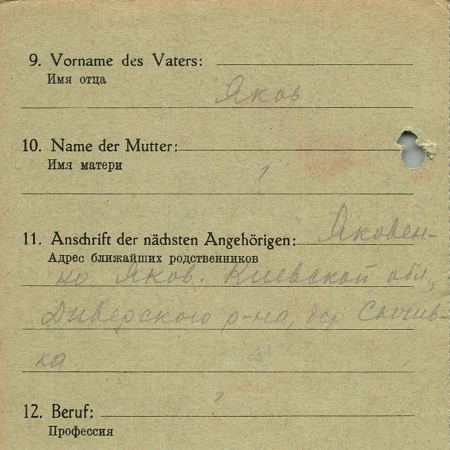 9. Vorname des Vaters:
Имя отца
Яков
10. Name der Mutter:
Имя матери
?
11. Anschrift der nächsten Angehörigen: Яковен-
Адрес ближайших родственников
ко Яков. Киевской обл,
Диверского р-на, дер Сычив-
ка
12. Beruf: ?
Профессия